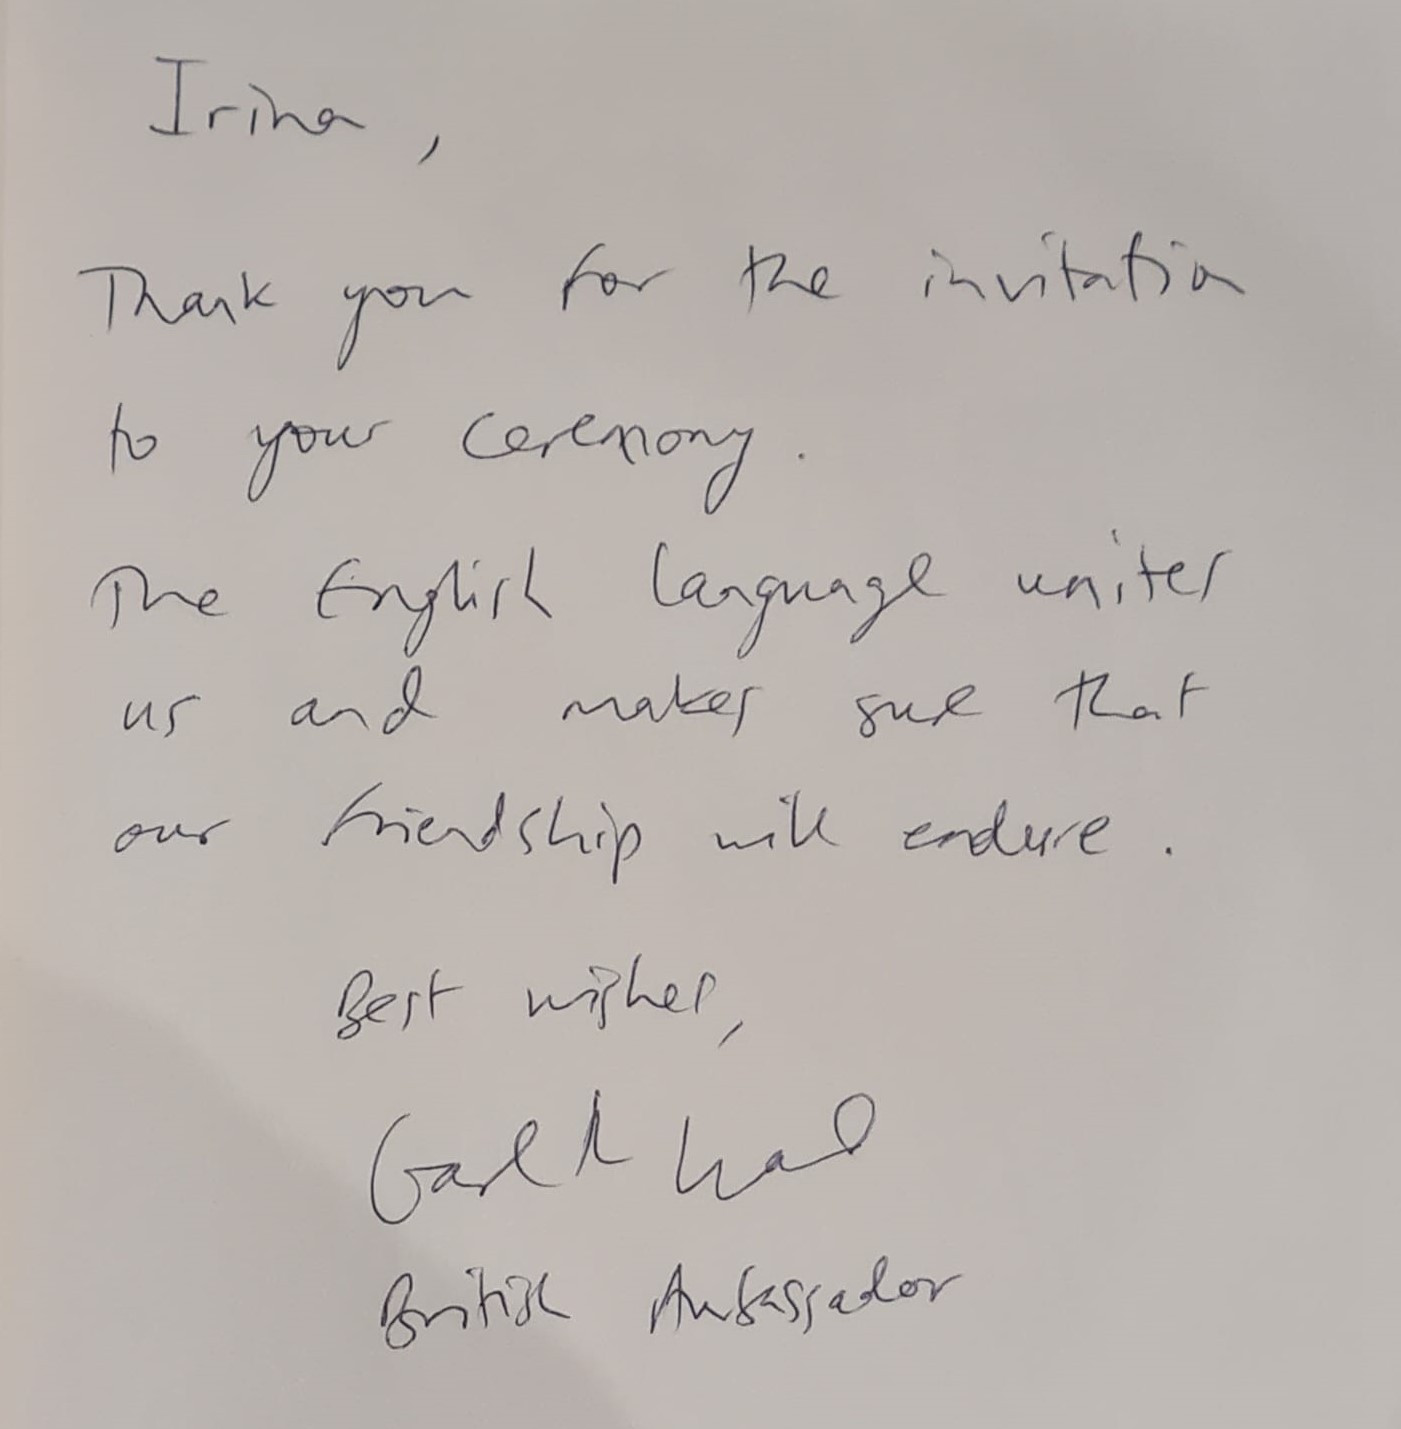 Irina,
Thank you for the invitation
to your ceremony.
The English language unites
us and makes sure that
our friendship will endure.
Best wishes,
British Ambassador